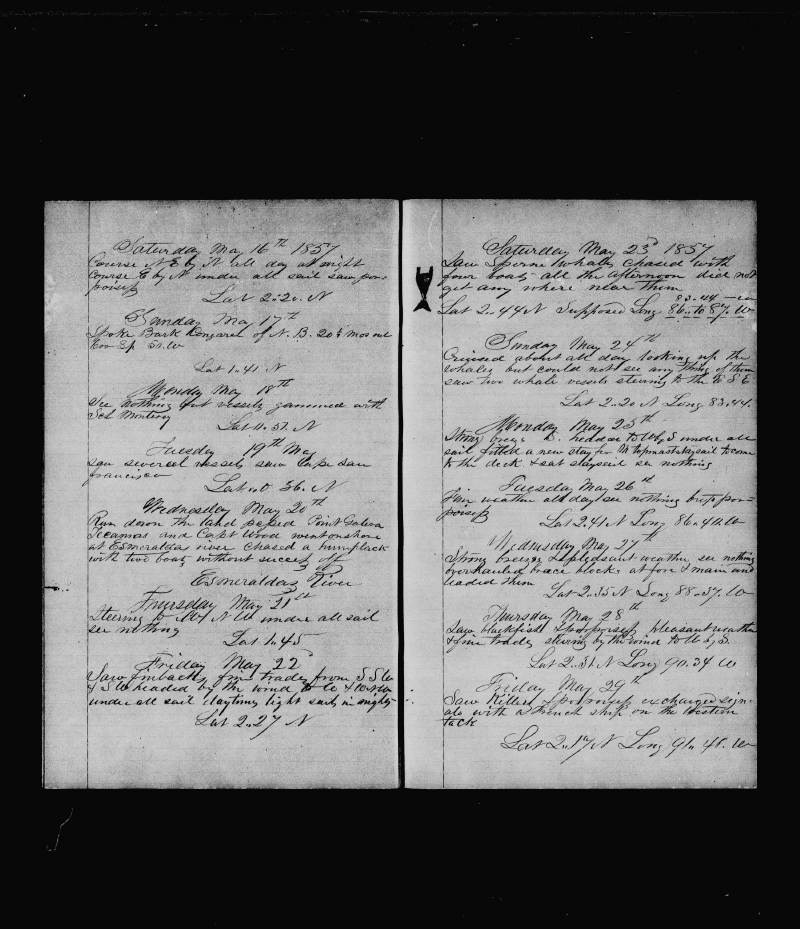 Saturday May 16th 1857
Course N E by N all day at night
course E by N under all sail saw por-
poises
Lat 2.20. N
Sunday May 17th
Spoke Bark Kongaree of N. B. 20½ mos out
Sp.
Lat 1.41. N
Monday May 18th
See nothing but vessels gammed with
Sch Monterey
Lat N
Tuesday 19th May
saw several vessels saw Cape San
francisco
Lat 0 36. N
Wednesday May 20th
Run down the land passed Point Galera
Tecamas and Capt Wood went on shore
at Esmeraldas river chased a humpback
with two boats without success off
Esmeraldas River
Thursday May 21st
Steering N W under all sail
see nothing
Lat 1.45
Friday May 22d
Saw finbacks fine trades from S S W
& S W headed by the wind to W & W.N.W
under all sail daytime light sails in nights
Lat 2.27 N
Saturday May 23d 1857
Saw Sperm Whales chased with
four boats all the afternoon did not
get any where near them
83.44 W
Lat 2.44 N Supposed Long 86. to 87. W
Sunday May 24th
Cruised about all day looking up the
whales but could not see any thing of them
saw two whale vessels steering to the E S E
Lat 2.20 N Long 83.44.
Monday May 25th
Strong breeze headed to W by S under all
sail fitted a new stay for M topmast staysail to come
to the deck & set staysail see nothing
Tuesday May 26th
Fair weather all day see nothing but por-
poises
Lat 2.41 N Long 86.40. W
Wednesday May 27th
Strong breezes & pleasant weather see nothing
overhauled brace blocks at fore & main and
leaded them
Lat 2.35 N Long 88.57. W
Thursday May 28th
Saw blackfish & porpoises pleasant weather
& fine trades steering by the wind to W by S.
Lat 2.51 N Long 90.34 W
Friday May 29th
Saw Killers & porpoises exchanged sign-
als with a French ship on the western
tack
Lat 2.17 N Long 91. 48. W